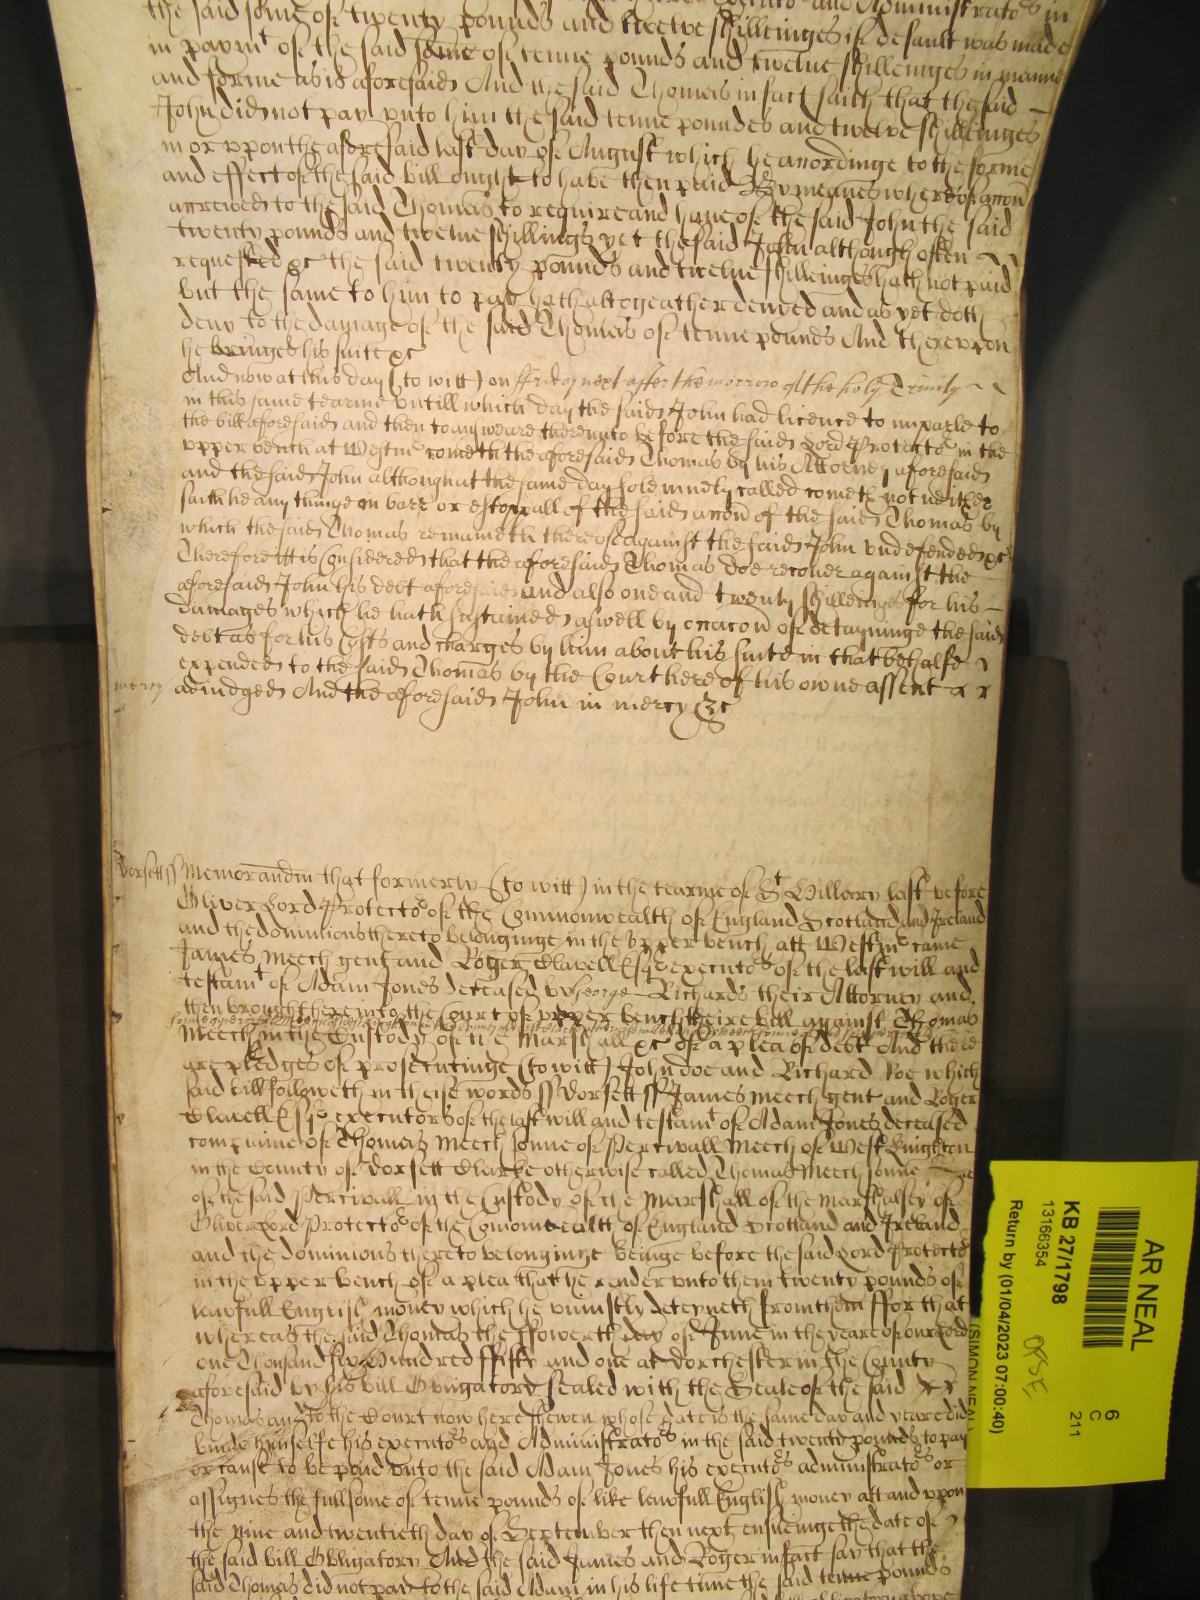 the said some of twenty pounds and twelve shillinges if default was made
in paymt of the said some of tenne pounds and twelve shillinges in manner
and forme as is aforesaid And the said Thomas in fact saith that the said
John did not pay unto him the said tenne poundes and twelve shillinges
in or vppon the aforesaid last day of August which he accordinge to the forme
and effect of the said bill ought to have then paid By meanes whereof accon
accrewed to the said Thomas to require and have of the said John the said
twenty pounds and twelve shillings yet the said John although often
requested &c the said twenty pounds and twelve shillinges hath not paid
but the same to him to pay hath altogeather denied and as yet doth
deny to the damage of the said Thomas of tenne pounds And therevpon
he bringes his suite &c
And now at this day (to witt) on ffriday next after the morrow of the holy Trinity
in this same tearme vntill which day the said John had licence to imparle to
the bill aforesaid and then to answeare therevnto before the said Lord Protector in the
vpper bench at Westmr cometh the aforesaid Thomas by his Attorney aforesaid
and the said John although at the same day solemnely called cometh not neither
saith he any thinge in barr or estoppall of the said accon of the said Thomas by
which the said Thomas remaineth thereof against the said John vndefended &c
Therefore itt is Considered that the aforesaid Thomas doe recover against the
aforesaid John his debt aforesaid and also one and twenty shillinges for his
damages which he hath sustained aswell by occacon of detayninge the said
debt as for his Costs and charges by him about his suite in that behalfe
expended to the said Thomas by the Court here of his owne assent
mercy adiudged And the aforesaid John in mercy &c
Dorsett ss Memorandum that formerly (to witt) in the tearme of St Hillary last before
Oliver Lord Protector of the Commonwealth of England Scotland and Ireland
and the dominions thereto belonginge in the vpper bench att Westmr came
James Meech gent and Roger Clavell Esqr executors of the last will and
testamt of Adam Jones deceased by George Richards their Attorney and
then brought here into the Court of vpper bench theire bill against Thomas
Meech in the Custody of the Marshall &c of a plea of debt And there
are pledges of prosecutinge (to witt) John doe and Richard Roe which
said bill followeth in theise words ss Dorsett ss James Meech gent and Roger
Clavell Esqr executors of the last will and testamt of Adam Jones deceased
complaine of Thomas Meech sonne of Percivall Meech of West
in the County of Dorsett Clarke otherwise called Thomas Meech sonne
of the said Percivall in the Custody of the Marshall of the Marshalsey of
Oliver Lord Protector of the Commonwealth of England Scotland and Ireland
and the dominions thereto belonginge beinge before the said Lord Protector
in the vpper bench of a plea that he render vnto them twenty pounds of
lawfull English money which he vniustly deteyneth from them ffor that
whereas the said Thomas the ffowerth day of June in the yeare of our Lord
one Thousand six Hundred ffifty and one at Dorchester in the County
aforesaid by his bill Obligatory sealed with the Seale of the said
Thomas and to the Court now here shewen whose date is the same day and yeare did
binde himselfe his executors and Administrators in the said twenty pounds to pay
or cause to be paid vnto the said Adam Jones his executors administrators or
assignes the full some of tenne pounds of like lawfull English money att and vppon
the nine and twentieth day of September then next ensueinge the date of
the said bill Obligatory And the said James and Roger in fact say that the
said Thomas did not pay to the said Adam in his life time the said tenne pounds
AR NEAL
6
C
211
KB 27/1798
13166354
Return by (01/04/2023 07:00:40)
(SIMON NEAL)